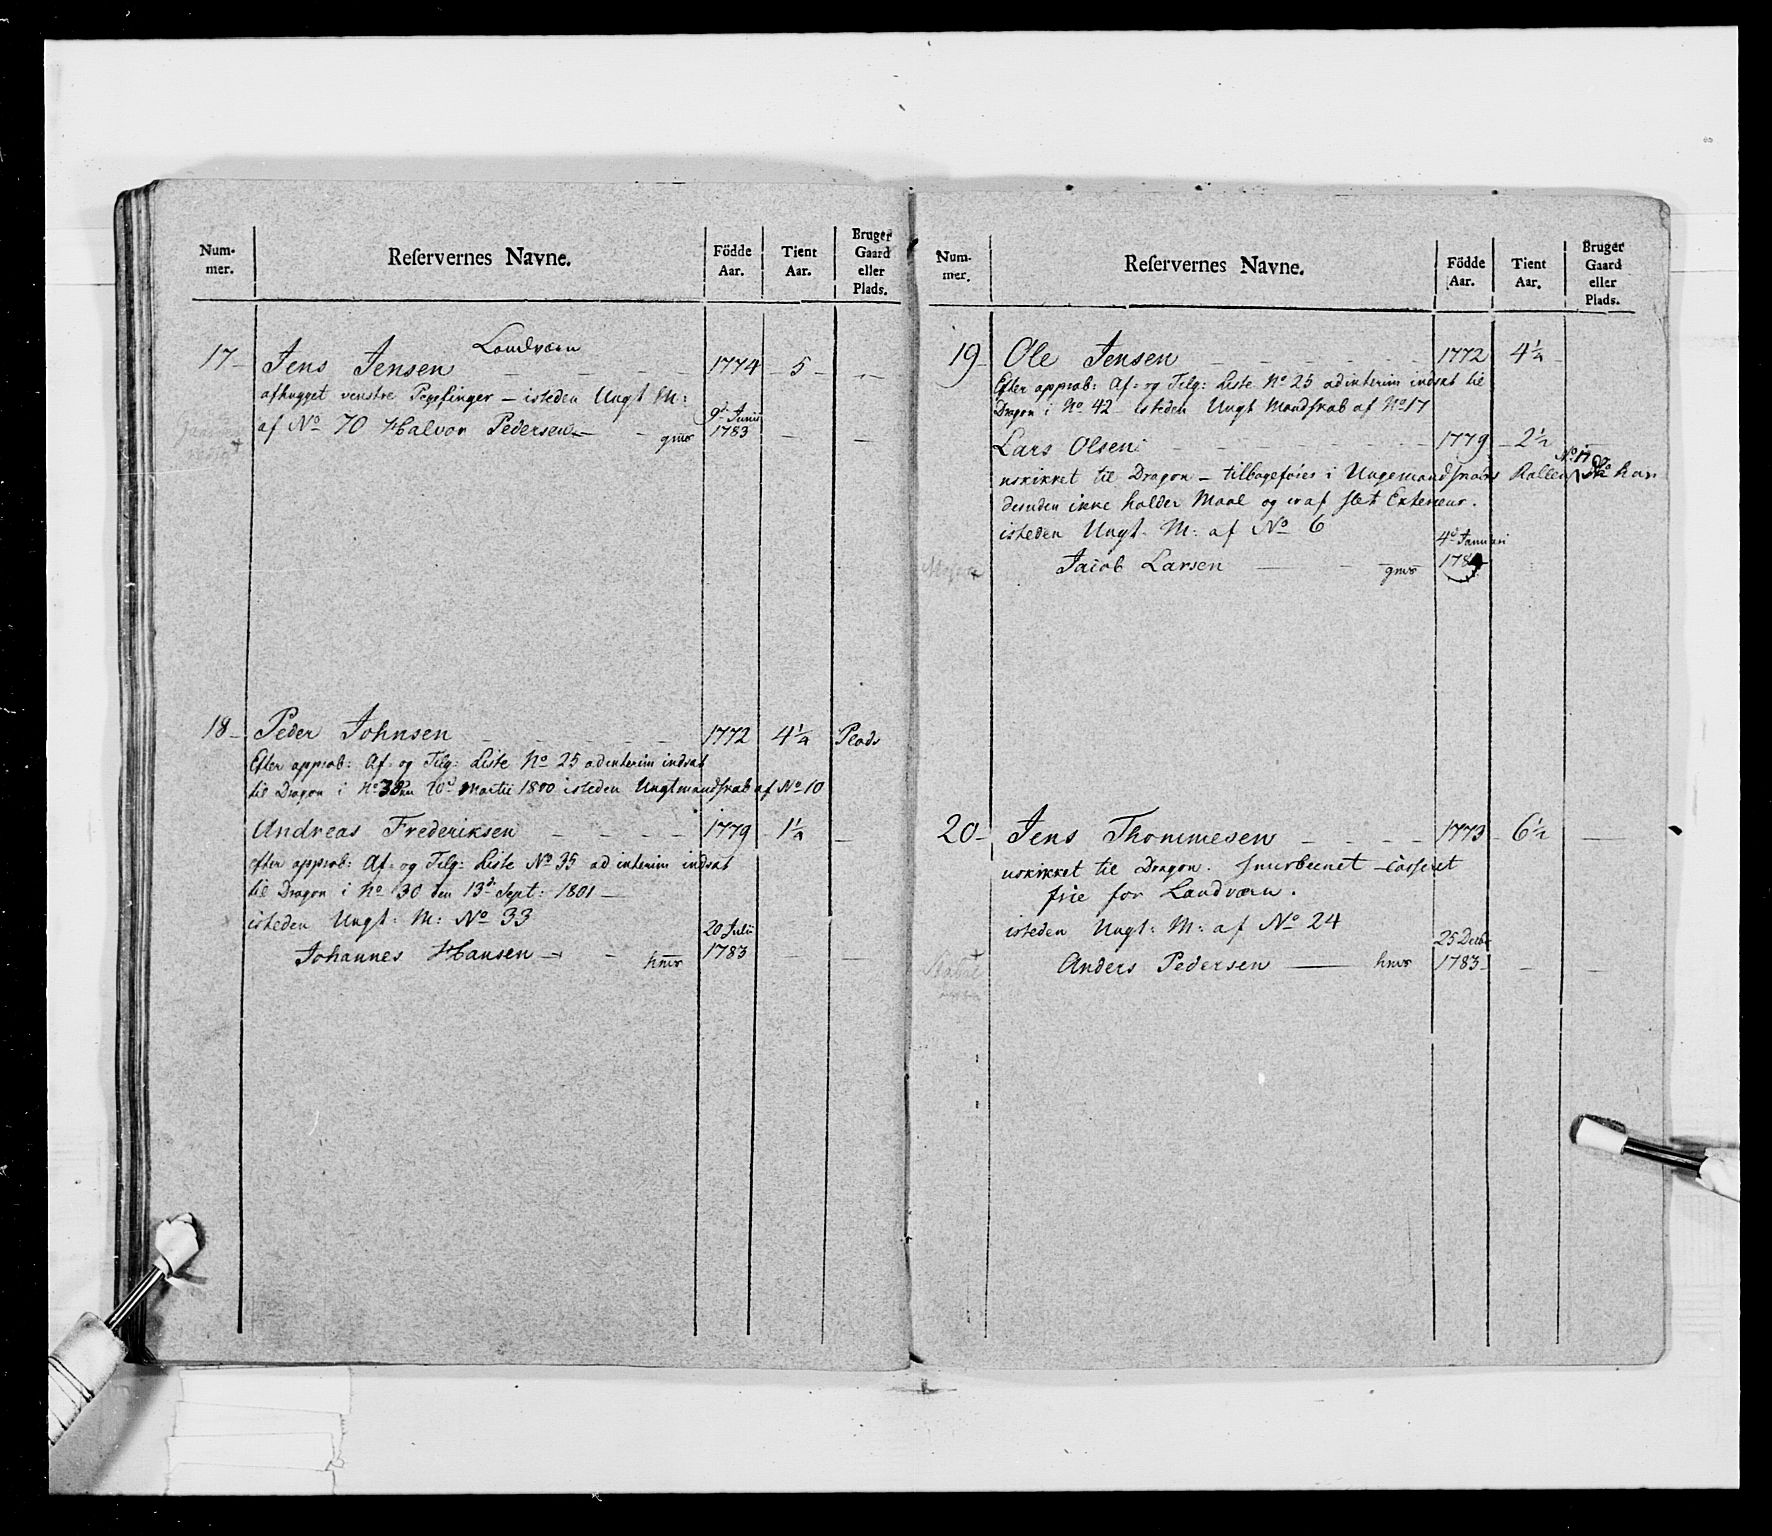 Num-
mer.
Reservernes Navne.
Födde
Aar.
Tient
Aar.
Bruger
Gaard
eller
Plads.
Landværn
17 - Jens Jensen - - - - 1774 - 5 - „ -
afhugget venstre Pegefinger - isteden Ungt M:
af No 70 Halvor Pedersen - - gmr 9d Junii 1783 - -
18 - Peder Johnsen - - - - 1772 4¼ Plads
Efter approb: Af- og Tilg: Liste No 25 adinterim indsat
til Dragon i No 38 Martii 1800 isteden Ungtmandskab af No 10
Andreas Frederiksen - - - - 1779 - 1¼ -
efter approb: Af- og Tilg: Liste No 35 ad interim indsat
til Dragon i No 30 den 13d Sept: 1801 -
isteden Ungt: M: No 33
Johannes Hansen - - hmr 20 Julii 1783 - -
Num-
mer.
Reservernes Navne.
Födde
Aar.
Tient
Aar.
Bruger
Gaard
eller
Plads.
19 - Ole Jensen - - - - 1772 4¼ -
Efter approb: Af- og Tilg: Liste No 25 adinterim indsat til
Dragon i No 42 isteden Ungt Mandskab af No 17
Lars Olsen - - - - 1779 - 2½ -
uskikket til Dragon - tilbageføres i Ungemandskabs Rollen No 17 han
desuden ikke holder Maal og er af slet Exterieur.
isteden Ungt: M: af No 6
Jacob Larsen - - gmr 4d Januari
20 - Jens Thommesen - - - - 1773 - 6½ -
uskikket til Dragon. snurbeenet - casseret
frie for Landværn.
isteden Ungt: M: af No 24
Anders Pedersen - hmr 25 Decbr 1783 - - -